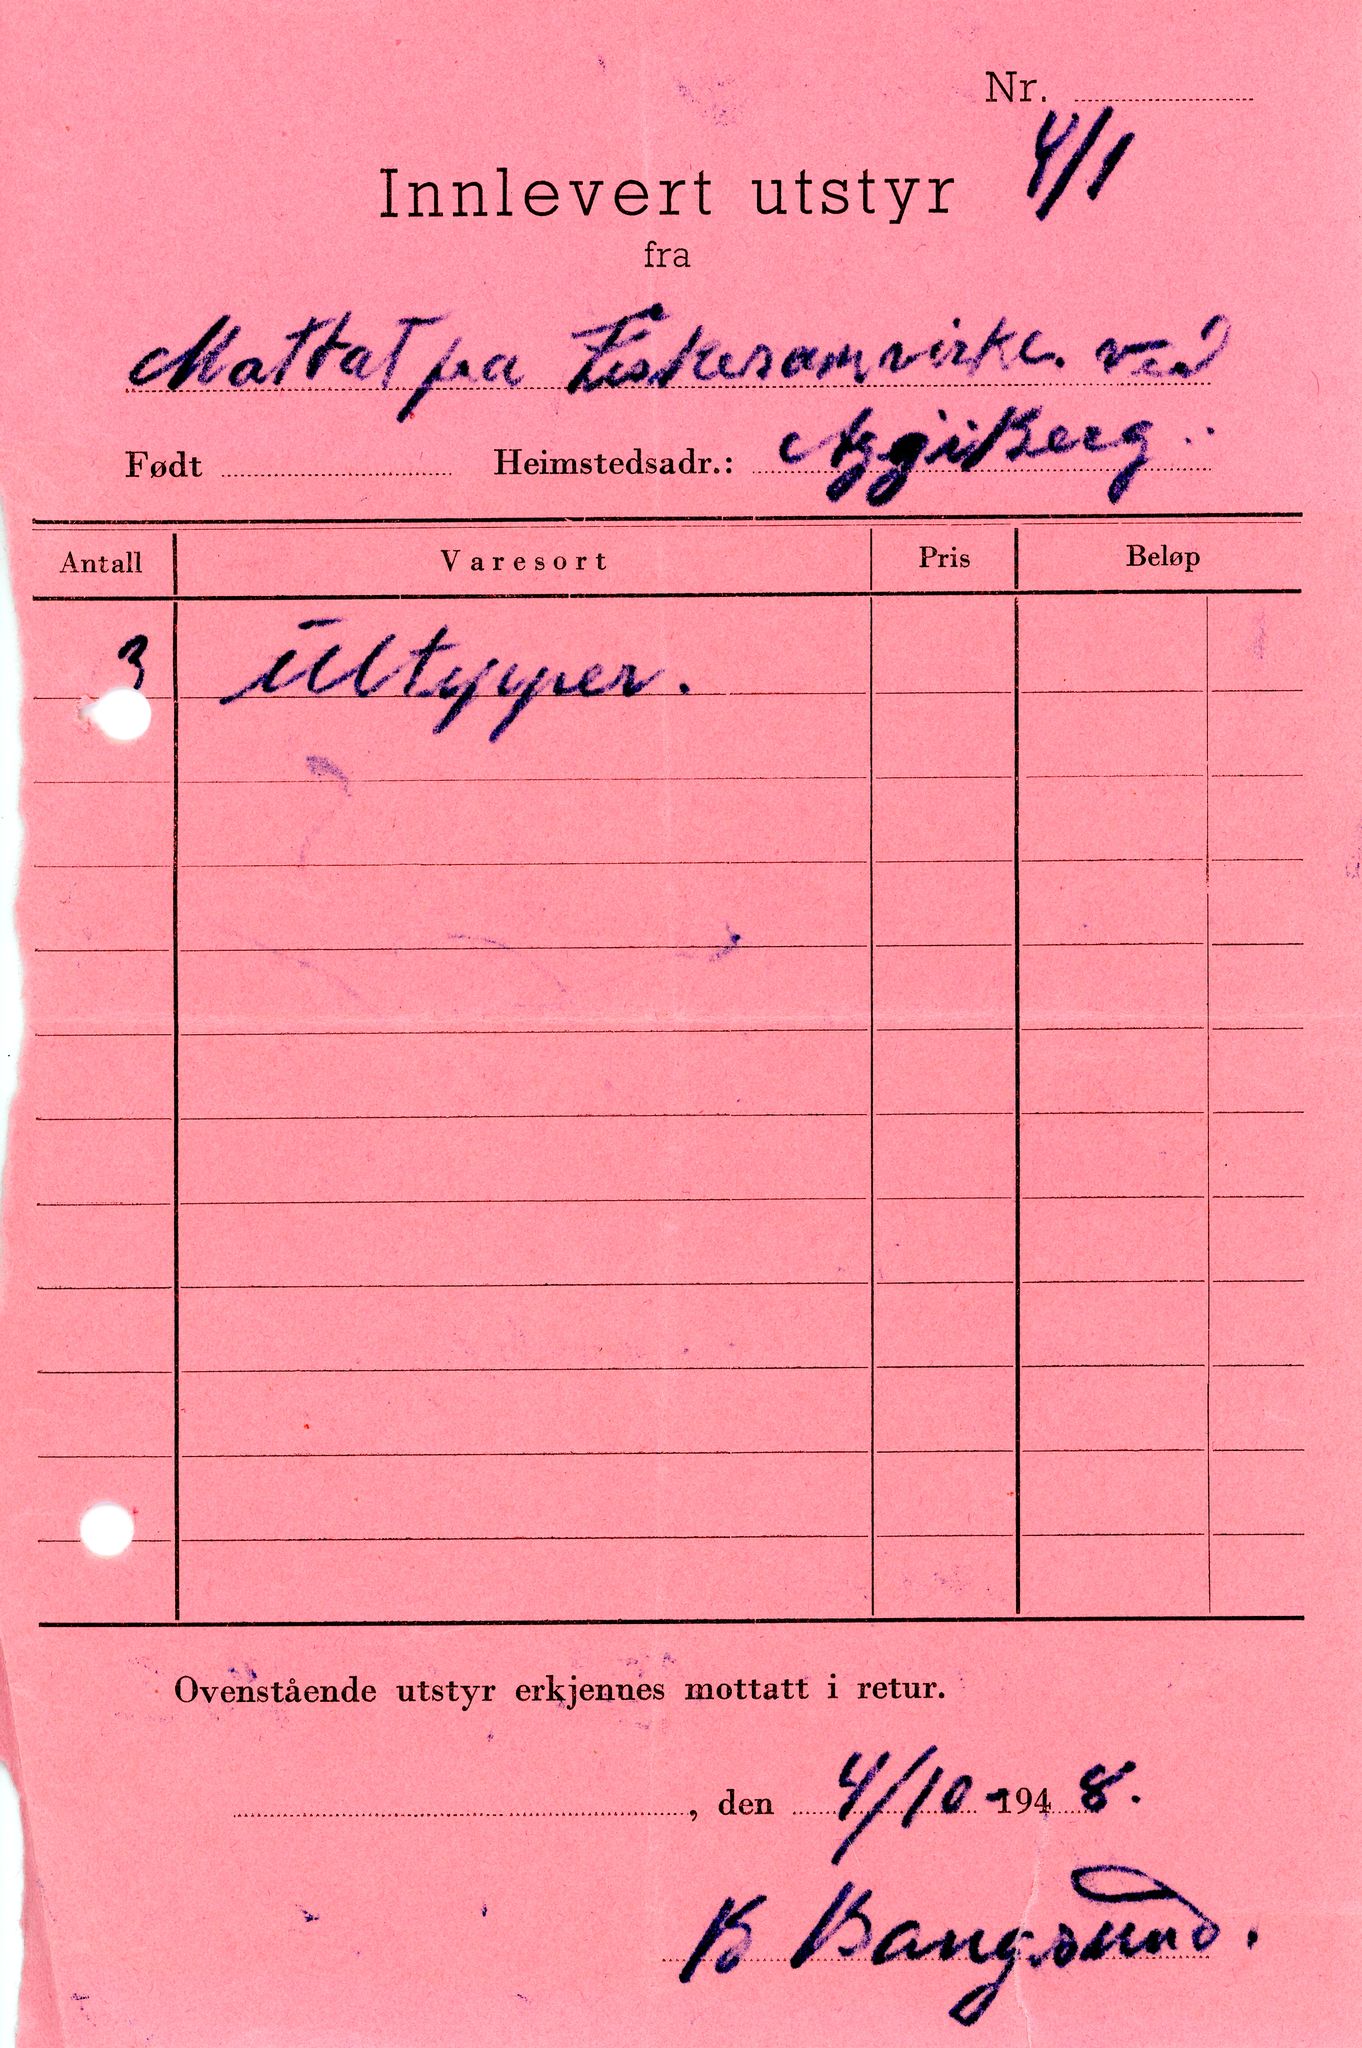 Nr.
4/1
Innlevert utstyr
fra
Mottat fra Fiskersamvirke. ved
Født Heimstedsadr.:
Antall Varesort Pris Beløp
3 Ultepper.
Ovenstående utstyr erkjennes mottatt i retur.
, den 4/10 - 1948.
B Bangsund.